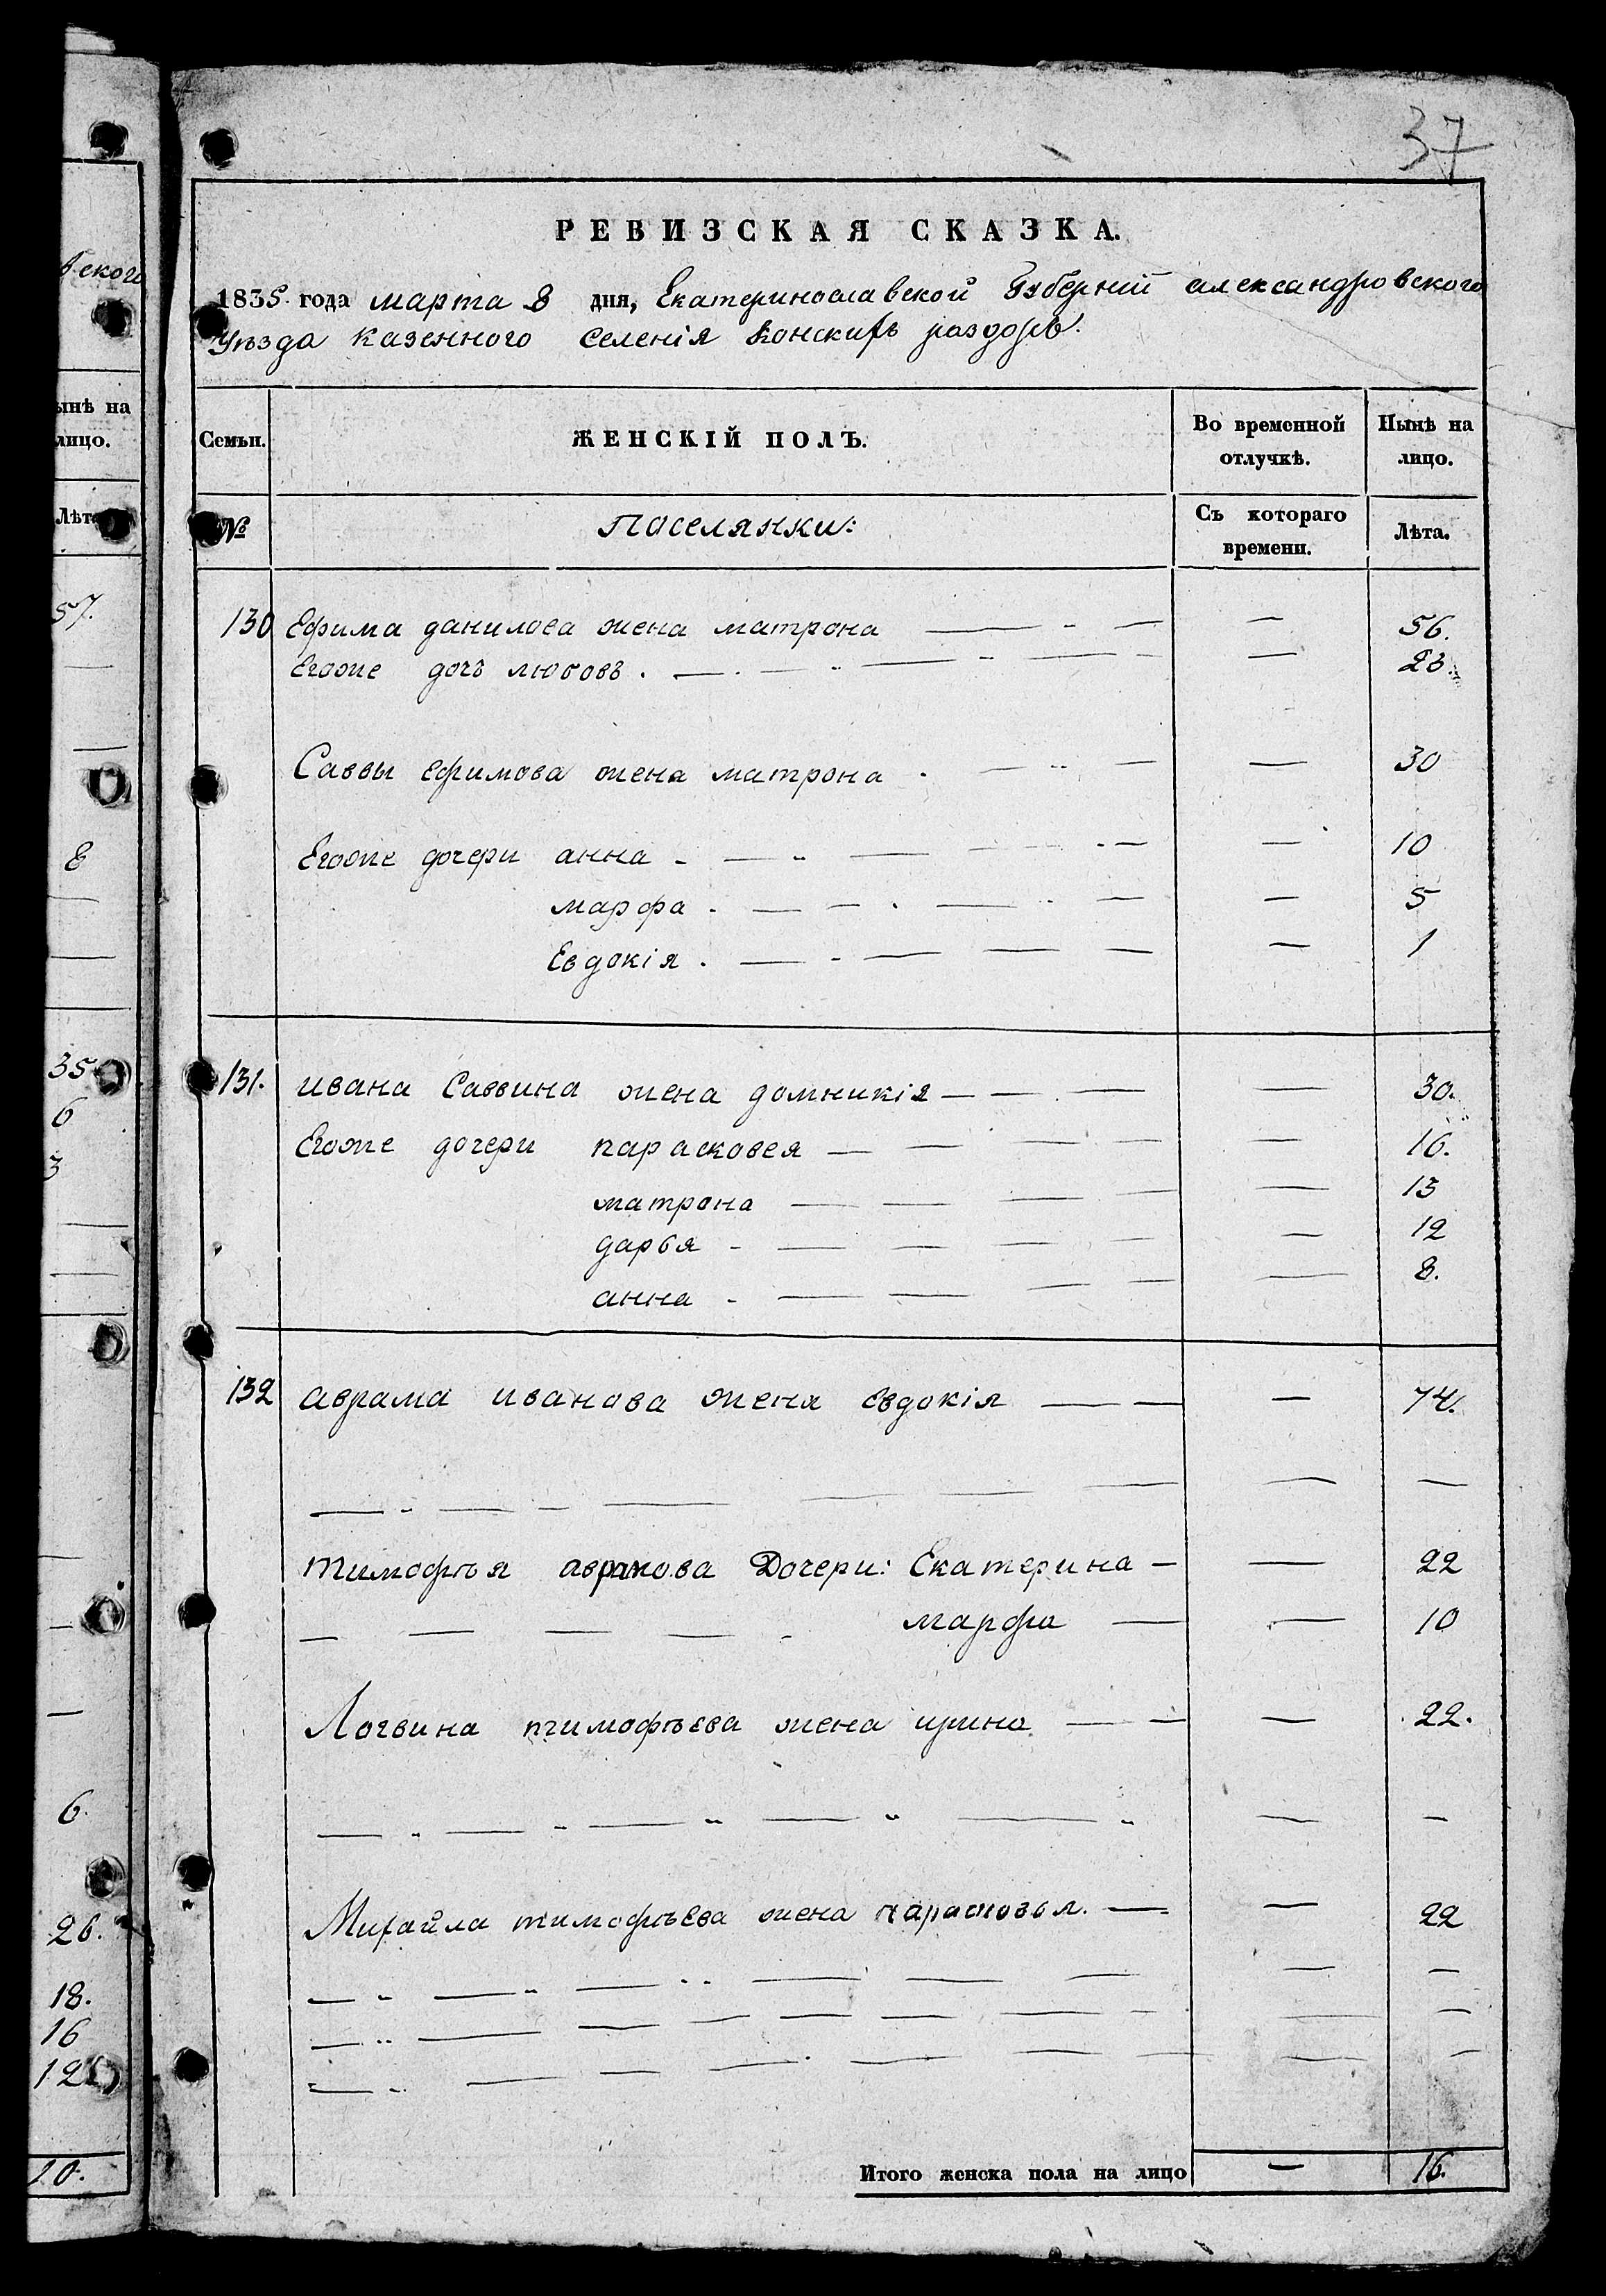 37
РЕВИЗСКАЯ СКАЗКА.
1835 года марта 8 дня, Екатеринославской Губерніи александровского
Уѣзда казенного селенія Конскихъ раздоръ.
Семьи. ЖЕНСКІЙ ПОЛЪ. Во временной отлучкѣ. Нынѣ на лицо.
№ Поселянки: Съ котораго времени. Лѣта.
130 Ефима данилова жена матрона — — 56.
Егоже дочь любовь. — — 23.
Саввы ефимова жена матрона — — 30
Егоже дочери анна — — 10
марфа — — 5
Евдокія — — 1
131. ивана Саввина жена домникія — — 30.
Егоже дочери парасковея — — 16.
матрона — — 13
дарья — — 12
анна — — 8.
132 аврама иванова жена евдокія — — 74.
— — —
тимофѣя аврамова Дочери: Екатерина — — 22
марфа — — 10
Логвина тимофѣева жена ирина — — 22.
— — —
Михайла тимофѣева жена парасковья. — — 22
— — —
— — —
— — —
Итого женска пола на лицо — 16.
вского
ынѣ на
лицо.
Лѣта
57.
8
35
6
3
6.
26.
18.
16
12
10.